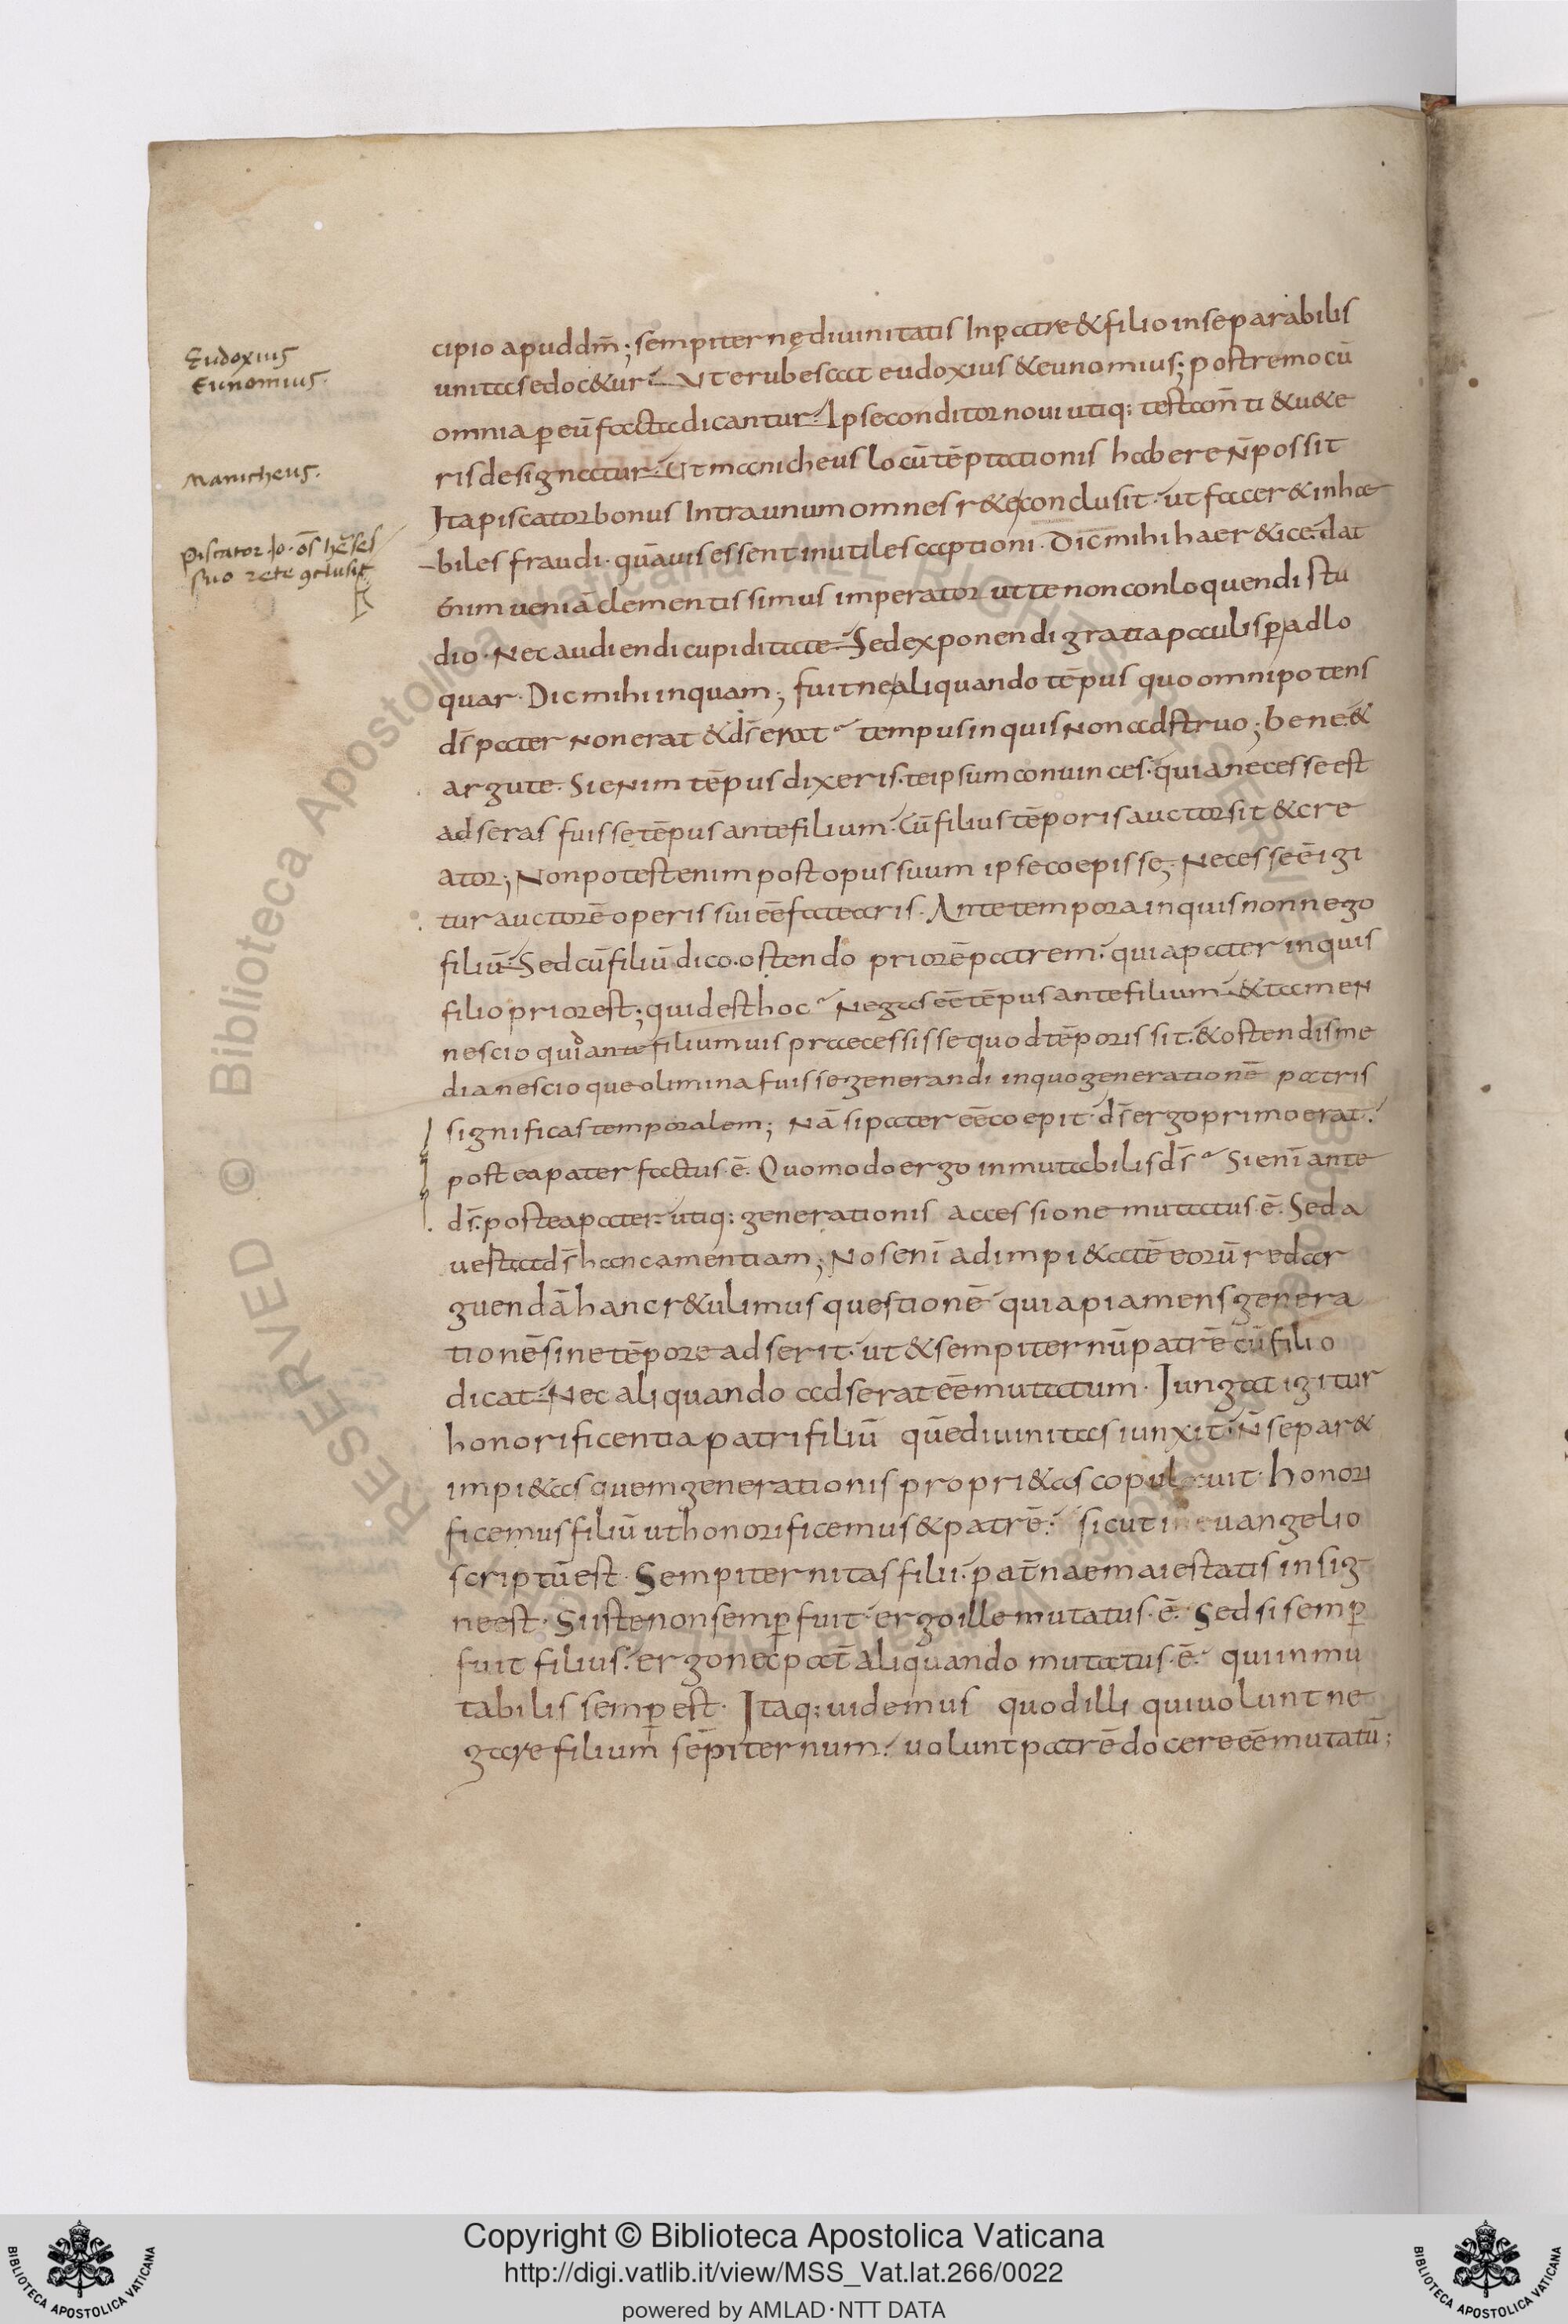 Eudoxius
Eunomius.
Manicheus.
piscator .Io. os̄ hęses
suo rete ꝯclusit
cipio apud dm̄; sempiternę diuinitatis In patre & filio inseparabilis
unitas edoc&ur. Ut erubescat eudoxius & eunomius; postremo cū
omnia ꝑ eū facta dicantur. Ipse conditor noui utiq: testam̄ti & u&e
ris designatur. Ut manicheus locū tēptationis habere n̄ possit
Ita piscator bonus Intra unum omnes r&e conclusit. ut facer& inha
biles fraudi. quāuis essent inutiles captioni. Dic mihi haer&ice. dat
enim ueniā clementissimus imperator ut te non conloquendi stu
dio. Nec audiendi cupiditate. Sed exponendi gratia paulisꝑ adlo
quar. Dic mihi inquam; fuit ne aliquando tēpus quo omnipotens
dī pater non erat & dī erat tempus inquis non adstruo; bene &
argute. Si enim tēpus dixeris. te ipsum conuinces. quia necesse est
adseras fuisse tēpus ante filium. Cū filius tēporis auctor sit & cre
ator; Non potest enim post opus suum ipse coepisse; Necesse ē igi
tur auctorē operis sui eē fatearis. Ante tempora inquis non nego
filiū. Sed cū filiū dico. ostendo priorē patrem. quia pater inquis
filio prior est; quid est hoc Negas eē tēpus ante filium & tamen
nescio quid ante filium uis praecessisse quod tēporis sit. & ostendis me
dia nescio que olimina fuisse generandi in quo generationē patris
significas temporalem; Nā si pater eē coepit. dī ergo primo erat.
post ea pater factus ē. Quomodo ergo inmutabilis dī Si eni̅ ante
dī. postea pater. utiq: generationis accessione mutatus ē. Sed a
uestat dī hanc amentiam; Nos eni̅ ad impi&atē eorū redar
guendā hanc r&ulimus questionē quia pia mens genera
tionē sine tēpore adserit. ut & sempiternū patrē cū filio
dicat. Nec aliquando adserat eē mutatum. Iungat igitur
honorificentia patri filiū quē diuinitas iunxit. N̄ separ&
impi&as quem generationis propri&as copulauit. honori
ficemus filiū ut honorificemus & patrē. sicut in euangelio
scriptū est. Sempiternitas filii. pat̄nae maiestatis insig
ne est. Si iste non semꝑ fuit. ergo ille mutatus. ē. Sed si semꝑ
fuit filius. ergo nec pat̄ aliquando mutatus. ē. qui inmu
tabilis semꝑ est. Itaq: uidemus quod illi qui uolunt ne
gare filium sēpiternum. uolunt patrē docere eē mutatū;
© Biblioteca Apostolica Vaticana ALL RIGHTS RESERVED
Copyright © Biblioteca Apostolica Vaticana
http://digi.vatlib.it/view/MSS_Vat.lat.266/0022
powered by AMLAD·NTT DATA
BIBLIOTECA APOSTOLICA VATICANA
BIBLIOTECA APOSTOLICA VATICANA